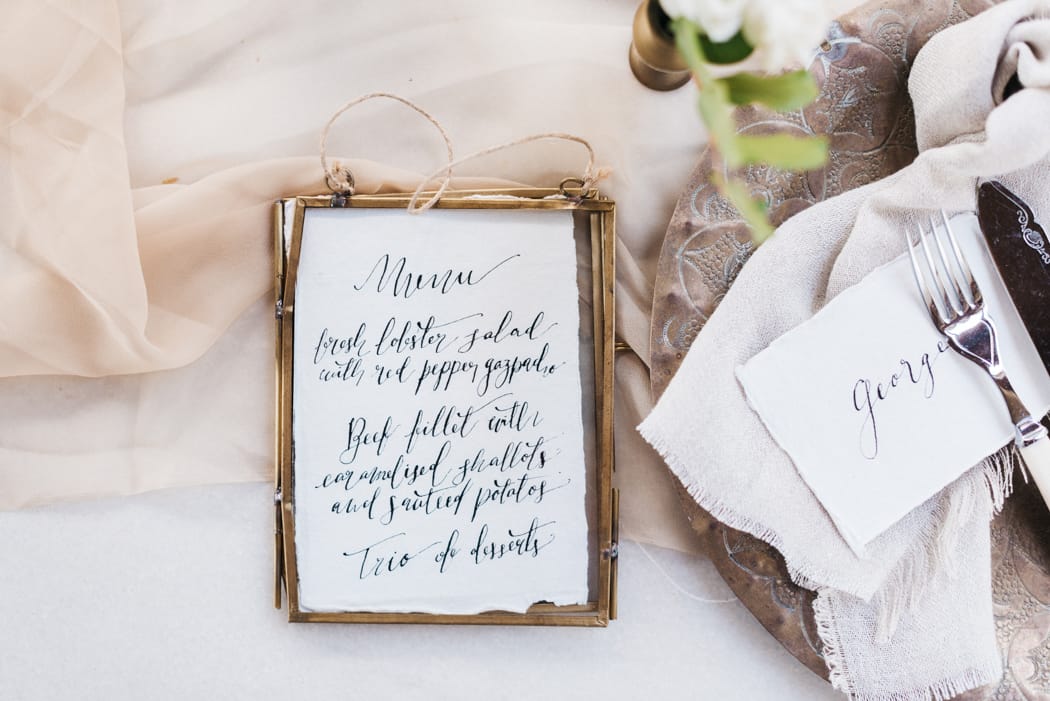 Menu
fresh lobster salad
with red pepper gazpacho
Beef fillet with
caramelised shallots
and sauteed potatos
Trio de desserts
george